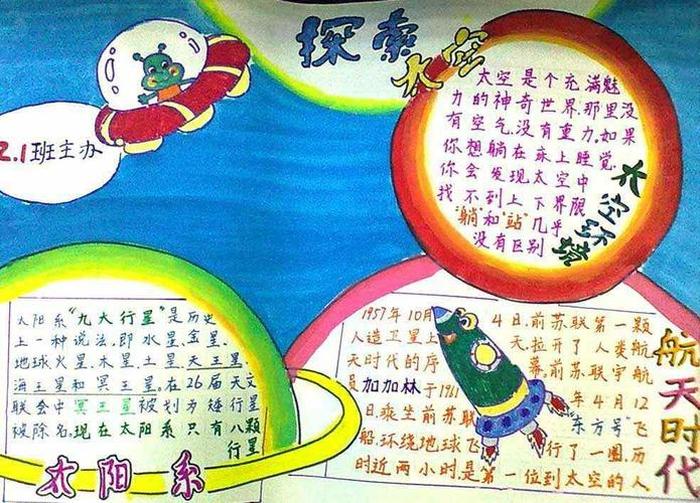 探索太空
2.1班主办
太空是个充满魅
力的神奇世界.那里没
有空气,没有重力.如果
你想躺在床上睡觉.
你会发现太空中
找不到上下界限
"躺"和"站"几乎
没有区别
太空环境
太阳系"九大行星"是历史
上一种说法,即水星.金星.
地球火星.木星.土星.天王星.
海王星和冥王星。在26届天文
联会中冥王星被划为矮行星
被除名.现在太阳系只有八颗
行星
太阳系
1957年10月4日.前苏联第一颗
人造卫星上天.拉开了人类航
天时代的序幕.前苏联宇航
员加加林于1961年4月12
日.乘坐前苏联"东方号"飞
船.环绕地球飞行了一圈.历
时近两小时.是第一位到太空的人
航天时代